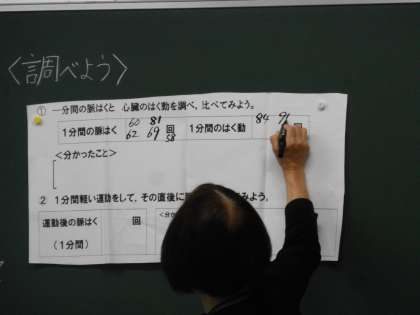 〈調べよう〉
① 一分間の脈はくと 心臓のはく動を調べ、比べてみよう。
60 81 84
1分間の脈はく 62 69 回 1分間のはく動
58
<分かったこと>
2 1分間軽い運動をして、その直後に
みよう。
運動後の脈はく 回
(1分間)